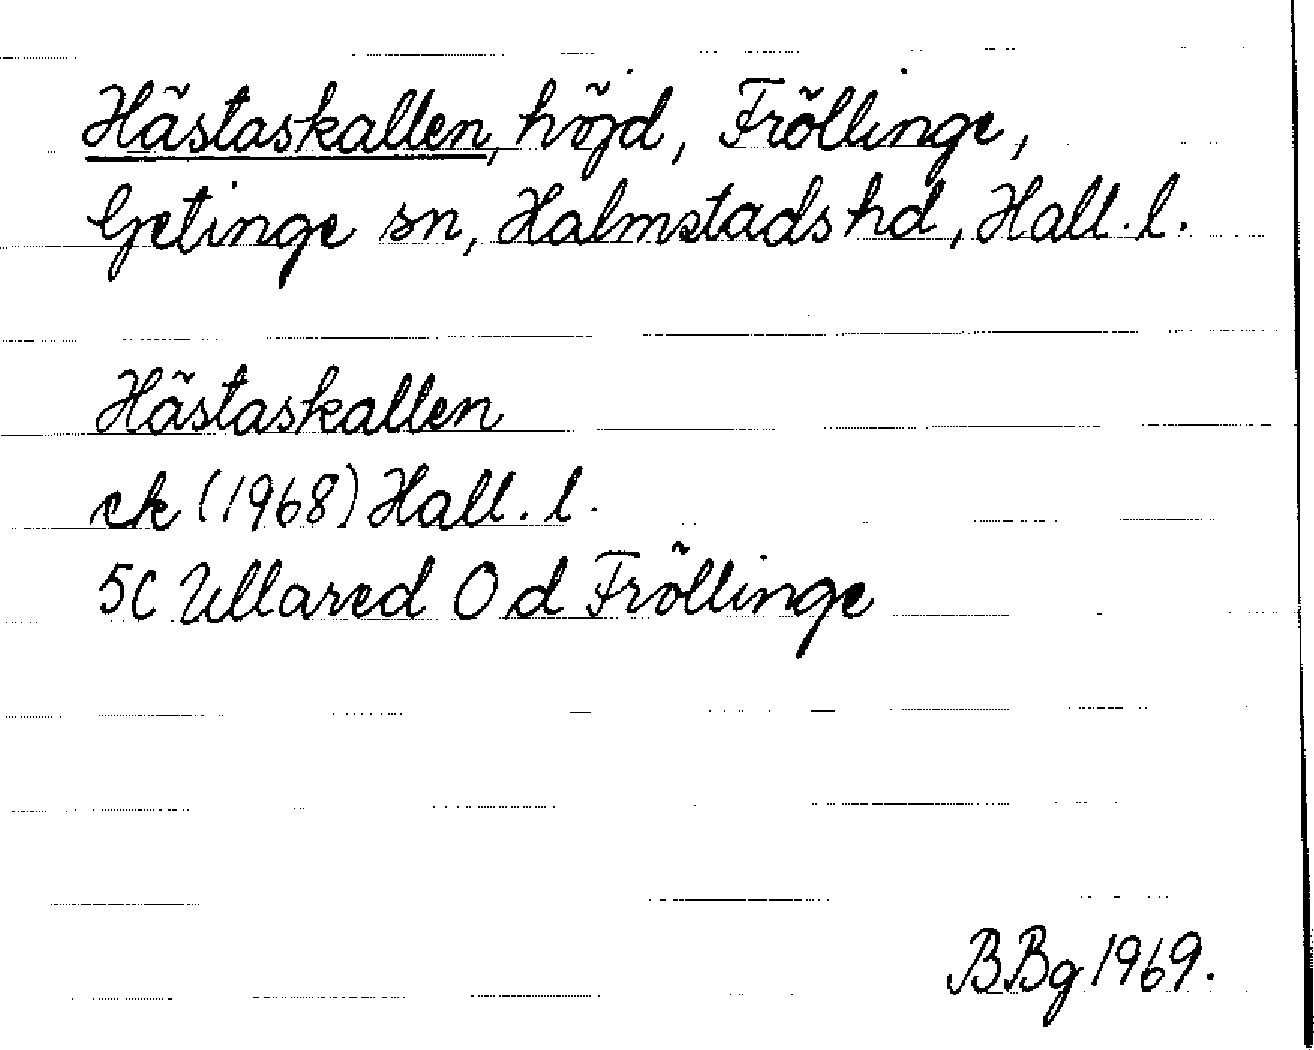 Hästaskallen, höjd, Fröllinge,
Getinge sn, Halmstads hd, Hall. l.
Hästaskallen
ek (1968) Hall. l.
5C Ullared O d Fröllinge
BBg 1969.